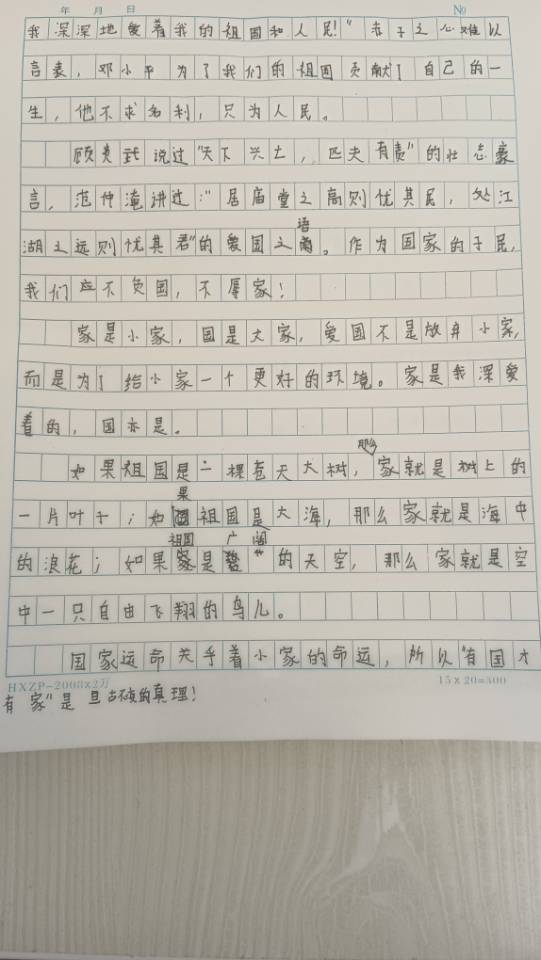 年 月 日 №
我深深地爱着我的祖国和人民!”赤子之心难以
言表,邓小平为了我们的祖国贡献了自己的一
生,他不求名利,只为人民。
顾炎武说过“天下兴亡,匹夫有责”的壮志豪
言,范仲淹讲过:“居庙堂之高则忧其民,处江
湖之远则忧其君”的爱国之语。作为国家的子民,
我们应不负国,不辱家!
家是小家,国是大家,爱国不是放弃小家,
而是为了给小家一个更好的环境。家是我深爱
着的,国亦是。
如果祖国是一棵苍天大树,那么家就是树上的
一片叶子;如果祖国是大海,那么家就是海中
的浪花;如果祖国是广阔的天空,那么家就是空
中一只自由飞翔的鸟儿。
国家运命关乎着小家的命运,所以“有国才
HXZP-2008x2万 15x20=300
有家”是亘古不破的真理!